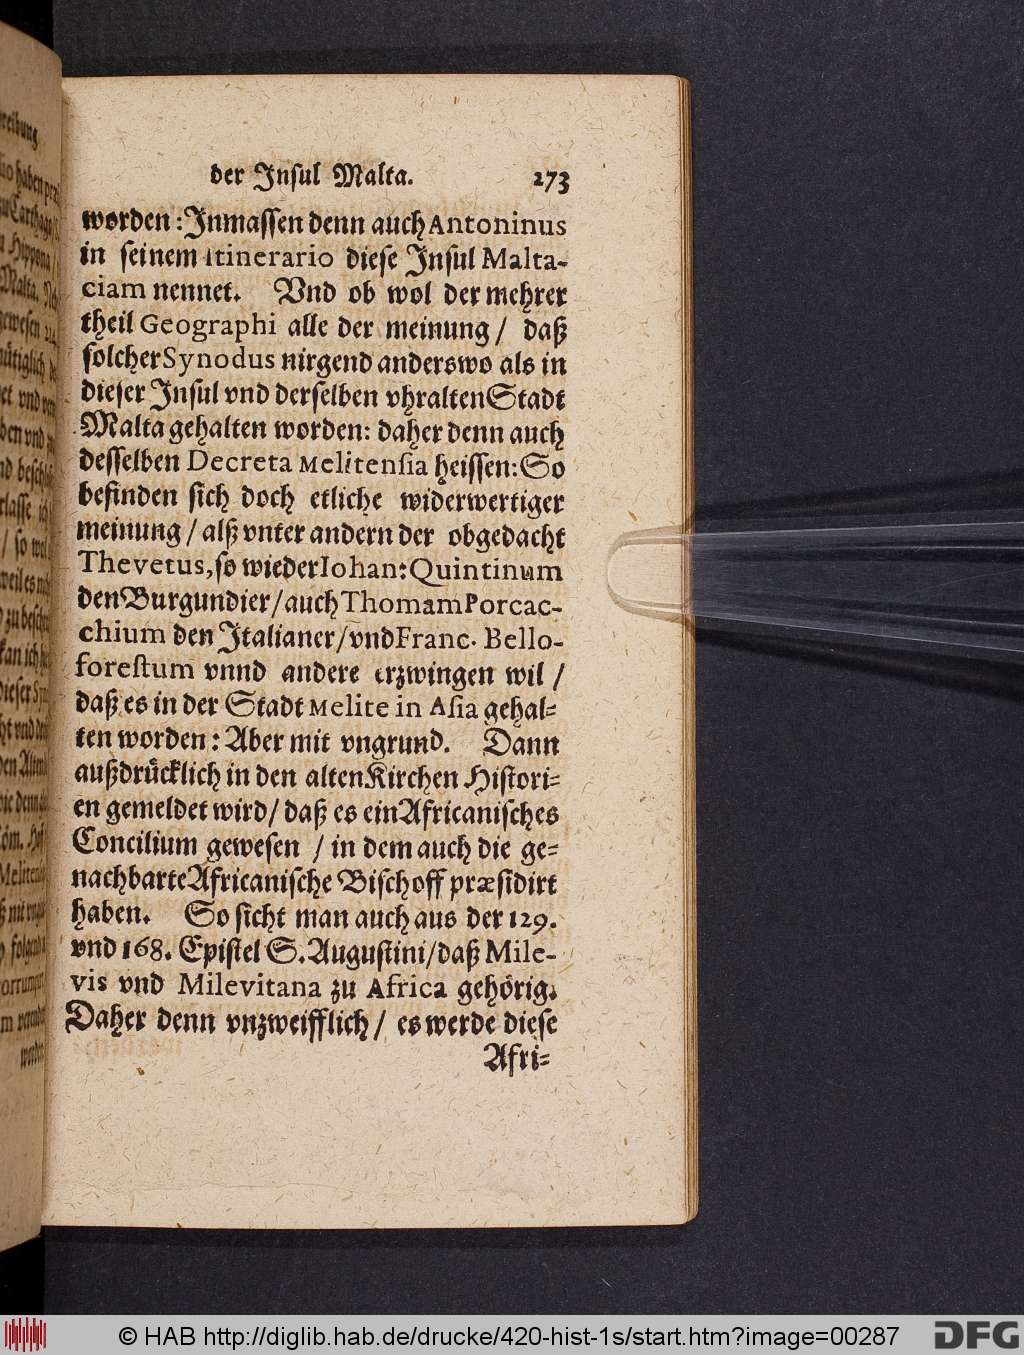 der Inſul Malta. 273
worden: Inmaſſen denn auch Antoninus
in ſeinem Itinerario dieſe Inſul Malta-
ciam nennet. Vnd ob wol der mehrer
theil Geographi alle der meinung / daß
ſolcher Synodus nirgend anderswo als in
dieſer Inſul vnd derſelben vhralten Stadt
Malta gehalten worden: daher denn auch
deſſelben Decreta Melitenſia heiſſen: So
befinden ſich doch etliche widerwertiger
meinung / alß vnter andern der obgedacht
Thevetus, ſo wieder Iohan: Quintinum
den Burgundier / auch Thomam Porcac-
chium den Italianer / vnd Franc. Bello-
foreſtum vnnd andere erzwingen wil /
daß es in der Stadt Melite in Aſia gehal-
ten worden: Aber mit vngrund. Dann
außdrücklich in den alten Kirchen Hiſtori-
en gemeldet wird / daß es ein Africaniſches
Concilium geweſen / in dem auch die ge-
nachbarte Africaniſche Biſchoff præſidirt
haben. So ſicht man auch aus der 129.
vnd 168. Epiſtel S. Auguſtini / daß Mile-
vis vnd Milevitana zu Africa gehörig.
Daher denn vnzweifflich / es werde dieſe
Afri-
© HAB http://diglib.hab.de/drucke/420-hist-1s/start.htm?image=00287
DFG